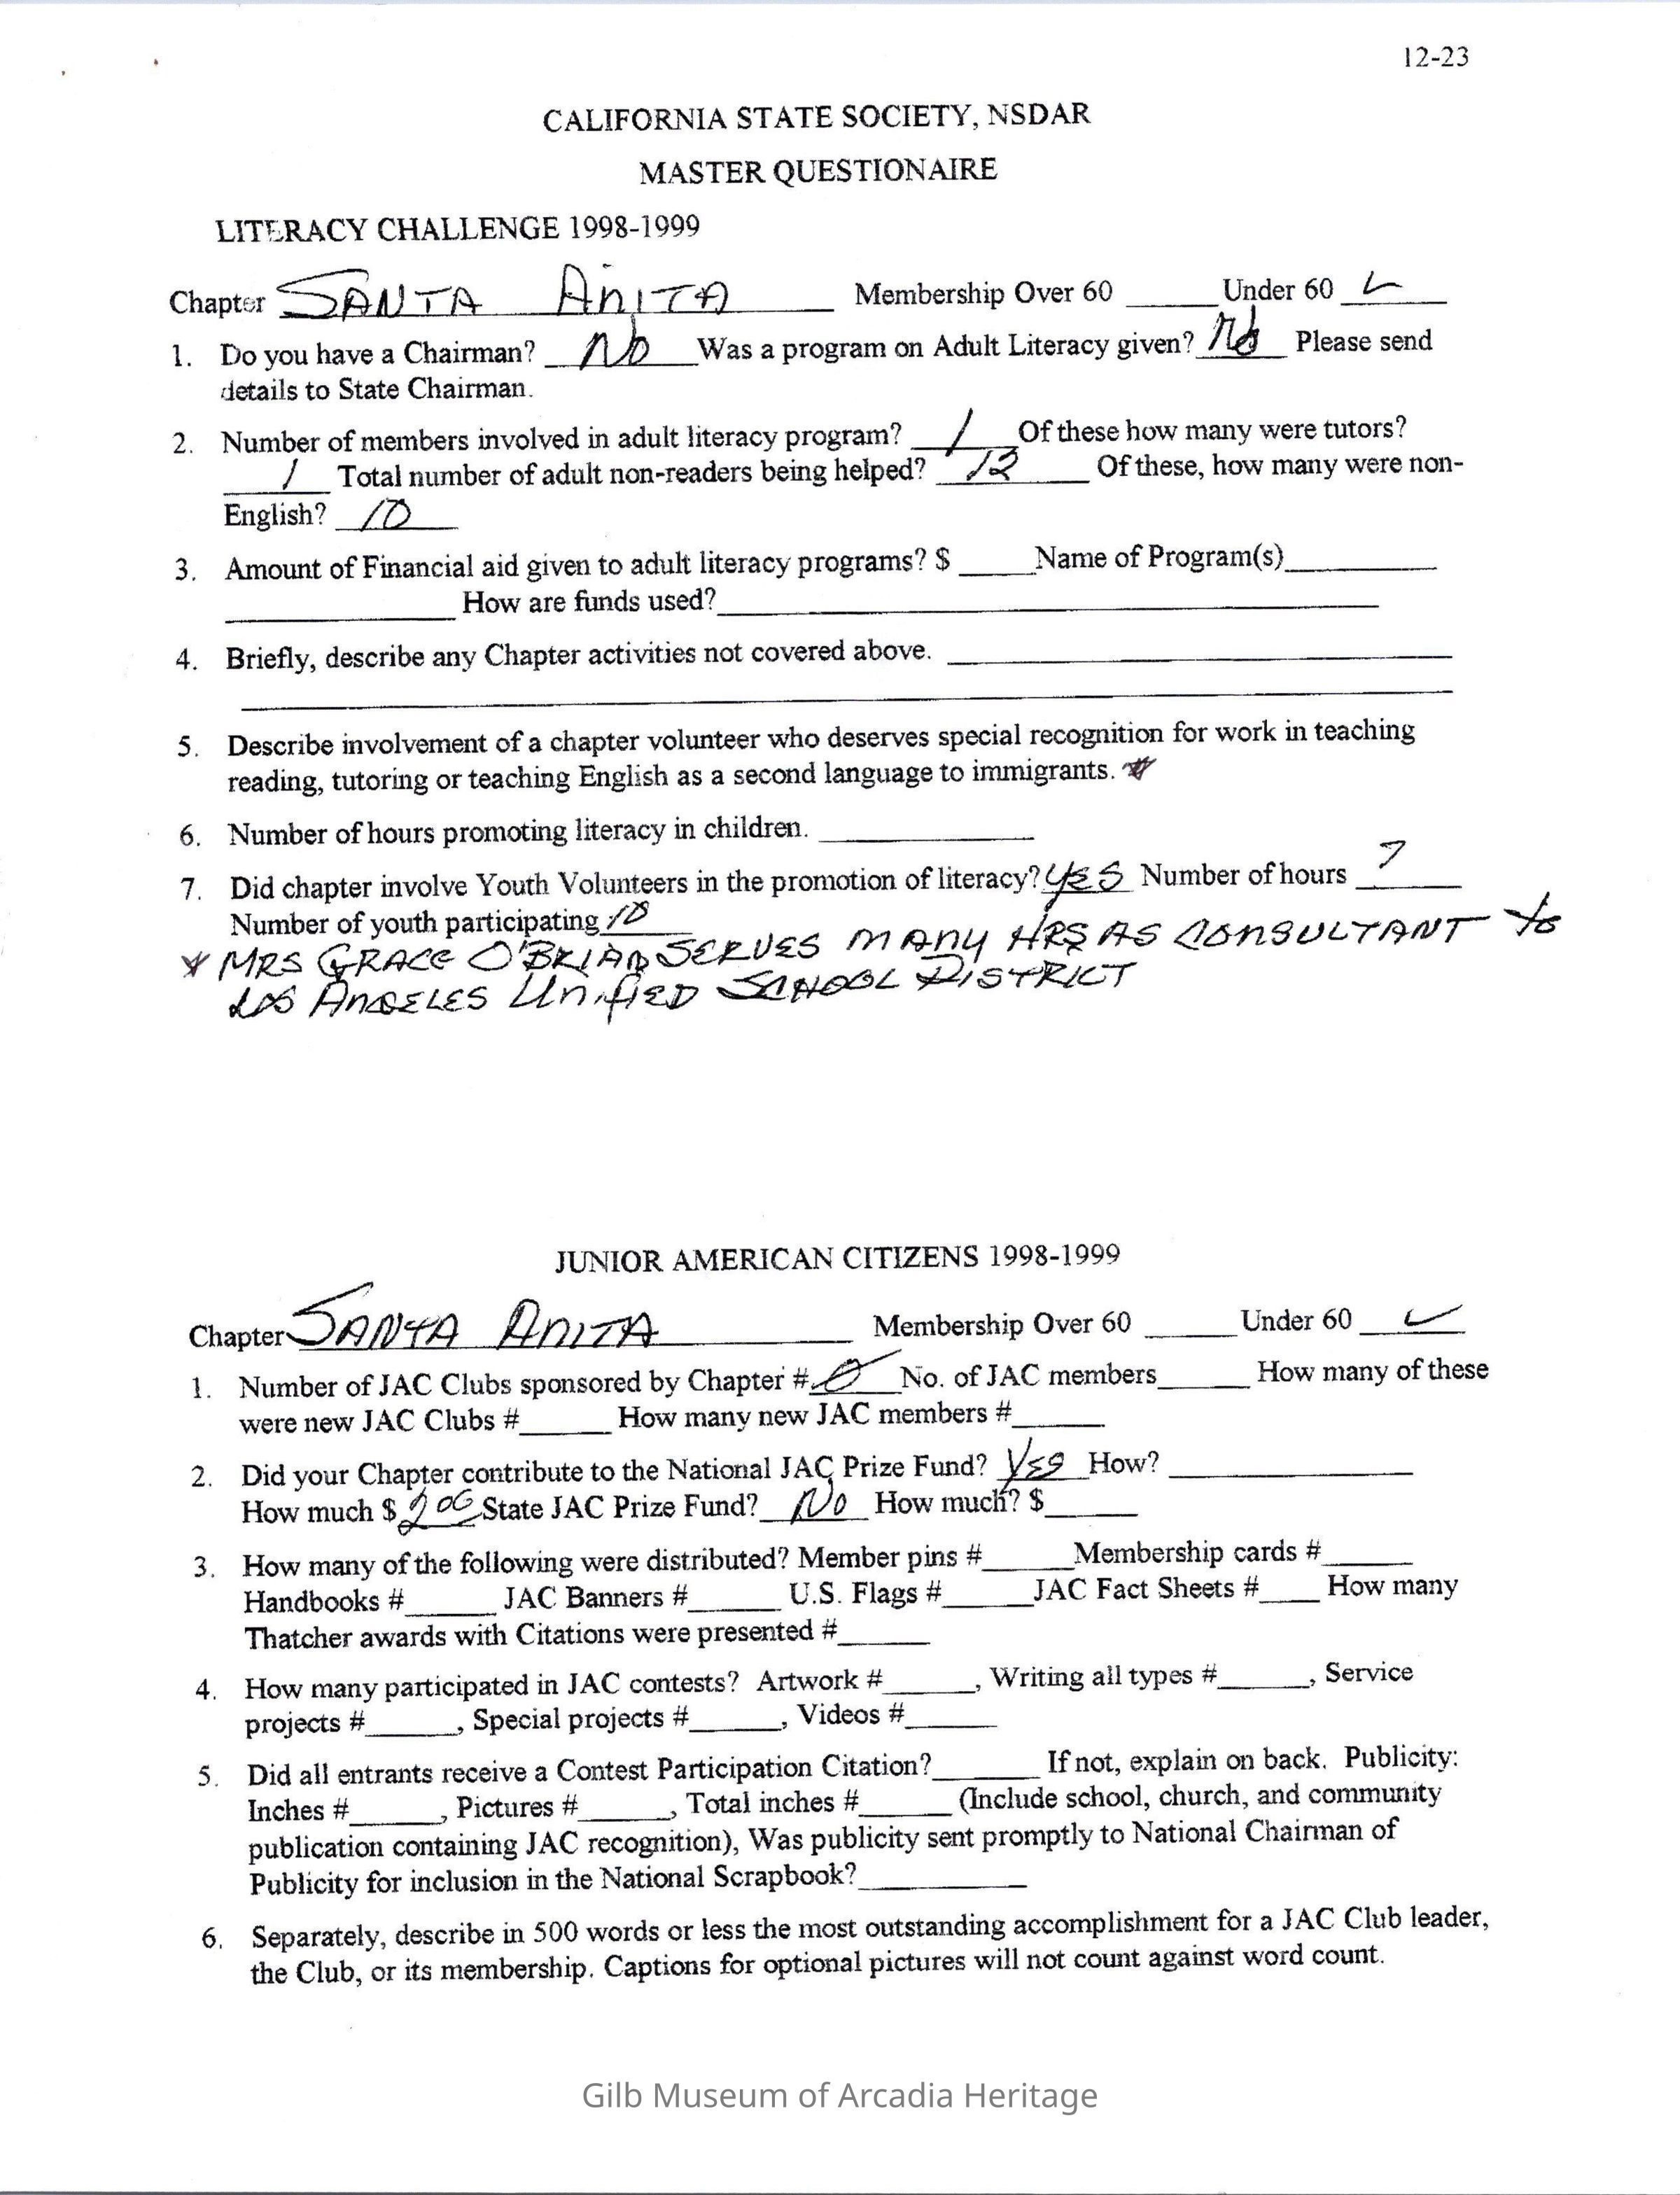 12-23
CALIFORNIA STATE SOCIETY, NSDAR
MASTER QUESTIONAIRE
LITERACY CHALLENGE 1998-1999
Chapter SANTA ANITA Membership Over 60 ______ Under 60 ✓
1. Do you have a Chairman? No Was a program on Adult Literacy given? No Please send
details to State Chairman.
2. Number of members involved in adult literacy program? 1 Of these how many were tutors?
1 Total number of adult non-readers being helped? 12 Of these, how many were non-
English? 10
3. Amount of Financial aid given to adult literacy programs? $ _____ Name of Program(s)__________
_______________ How are funds used?____________________
4. Briefly, describe any Chapter activities not covered above. ____________________
5. Describe involvement of a chapter volunteer who deserves special recognition for work in teaching
reading, tutoring or teaching English as a second language to immigrants. *
6. Number of hours promoting literacy in children. ______________
7. Did chapter involve Youth Volunteers in the promotion of literacy? YES Number of hours ?
Number of youth participating 10
* MRS GRACE O'BRIAN SERVES MANY HRS AS CONSULTANT to
LOS ANGELES UNIFIED SCHOOL DISTRICT
JUNIOR AMERICAN CITIZENS 1998-1999
Chapter SANTA ANITA Membership Over 60 ______ Under 60 ✓
1. Number of JAC Clubs sponsored by Chapter # 0 No. of JAC members______ How many of these
were new JAC Clubs #______ How many new JAC members #______
2. Did your Chapter contribute to the National JAC Prize Fund? YES How? ________________
How much $ State JAC Prize Fund? No How much? $______
3. How many of the following were distributed? Member pins #______ Membership cards #______
Handbooks #______ JAC Banners #______ U.S. Flags #______ JAC Fact Sheets #____ How many
Thatcher awards with Citations were presented #______
4. How many participated in JAC contests? Artwork #______, Writing all types #______, Service
projects #______, Special projects #______, Videos #______
5. Did all entrants receive a Contest Participation Citation?_______ If not, explain on back. Publicity:
Inches #______, Pictures #______, Total inches #______ (Include school, church, and community
publication containing JAC recognition), Was publicity sent promptly to National Chairman of
Publicity for inclusion in the National Scrapbook?___________
6. Separately, describe in 500 words or less the most outstanding accomplishment for a JAC Club leader,
the Club, or its membership. Captions for optional pictures will not count against word count.
Gilb Museum of Arcadia Heritage